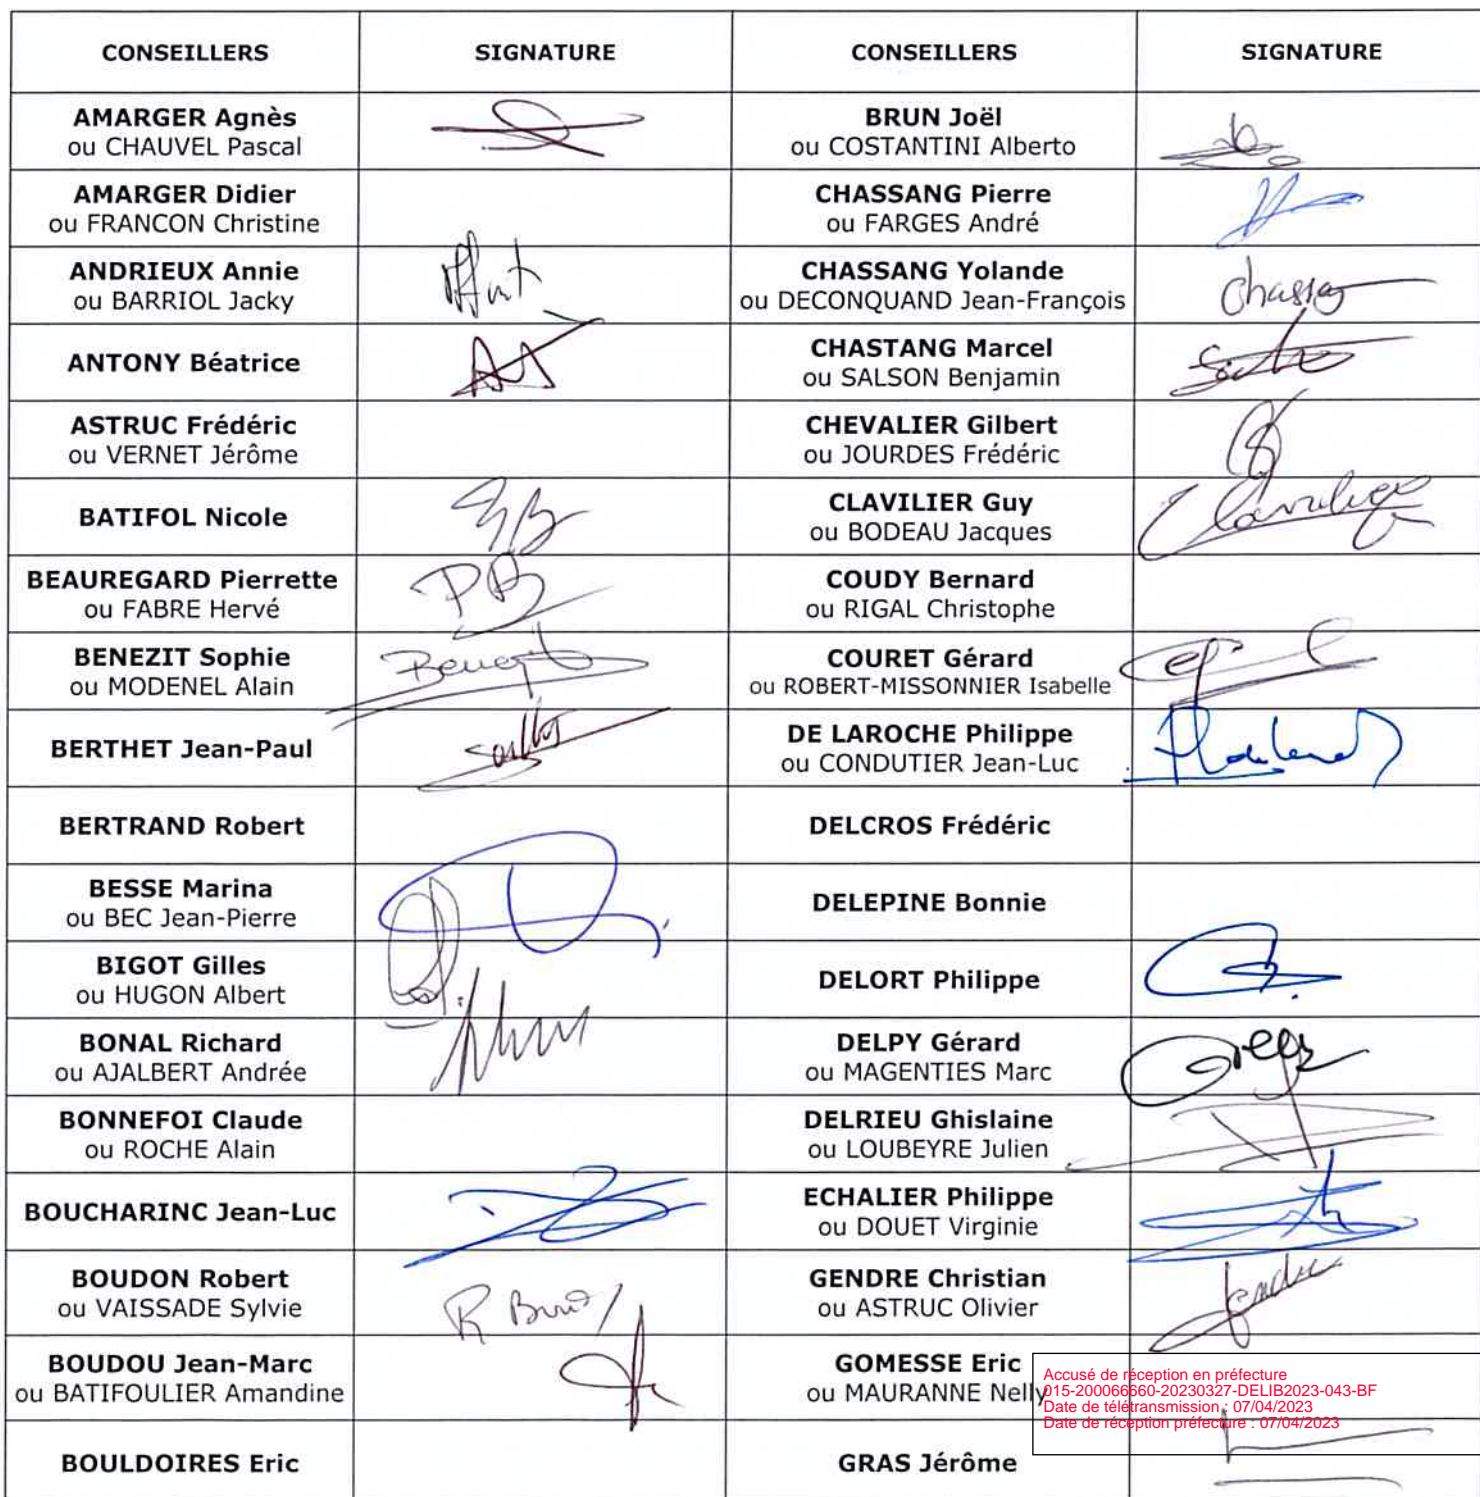 CONSEILLERS SIGNATURE CONSEILLERS SIGNATURE
AMARGER Agnès
ou CHAUVEL Pascal
BRUN Joël
ou COSTANTINI Alberto
AMARGER Didier
ou FRANCON Christine
CHASSANG Pierre
ou FARGES André
ANDRIEUX Annie
ou BARRIOL Jacky
CHASSANG Yolande
ou DECONQUAND Jean-François
ANTONY Béatrice
CHASTANG Marcel
ou SALSON Benjamin
ASTRUC Frédéric
ou VERNET Jérôme
CHEVALIER Gilbert
ou JOURDES Frédéric
BATIFOL Nicole
CLAVILIER Guy
ou BODEAU Jacques
BEAUREGARD Pierrette
ou FABRE Hervé
PB
COUDY Bernard
ou RIGAL Christophe
BENEZIT Sophie
ou MODENEL Alain
COURET Gérard
ou ROBERT-MISSONNIER Isabelle
BERTHET Jean-Paul
DE LAROCHE Philippe
ou CONDUTIER Jean-Luc
BERTRAND Robert
DELCROS Frédéric
BESSE Marina
ou BEC Jean-Pierre
DELEPINE Bonnie
BIGOT Gilles
ou HUGON Albert
DELORT Philippe
BONAL Richard
ou AJALBERT Andrée
DELPY Gérard
ou MAGENTIES Marc
BONNEFOI Claude
ou ROCHE Alain
DELRIEU Ghislaine
ou LOUBEYRE Julien
BOUCHARINC Jean-Luc
ECHALIER Philippe
ou DOUET Virginie
BOUDON Robert
ou VAISSADE Sylvie
GENDRE Christian
ou ASTRUC Olivier
BOUDOU Jean-Marc
ou BATIFOULIER Amandine
GOMESSE Eric
ou MAURANNE Nelly
Accusé de réception en préfecture
015-200066660-20230327-DELIB2023-043-BF
Date de télétransmission : 07/04/2023
Date de réception préfecture : 07/04/2023
BOULDOIRES Eric
GRAS Jérôme